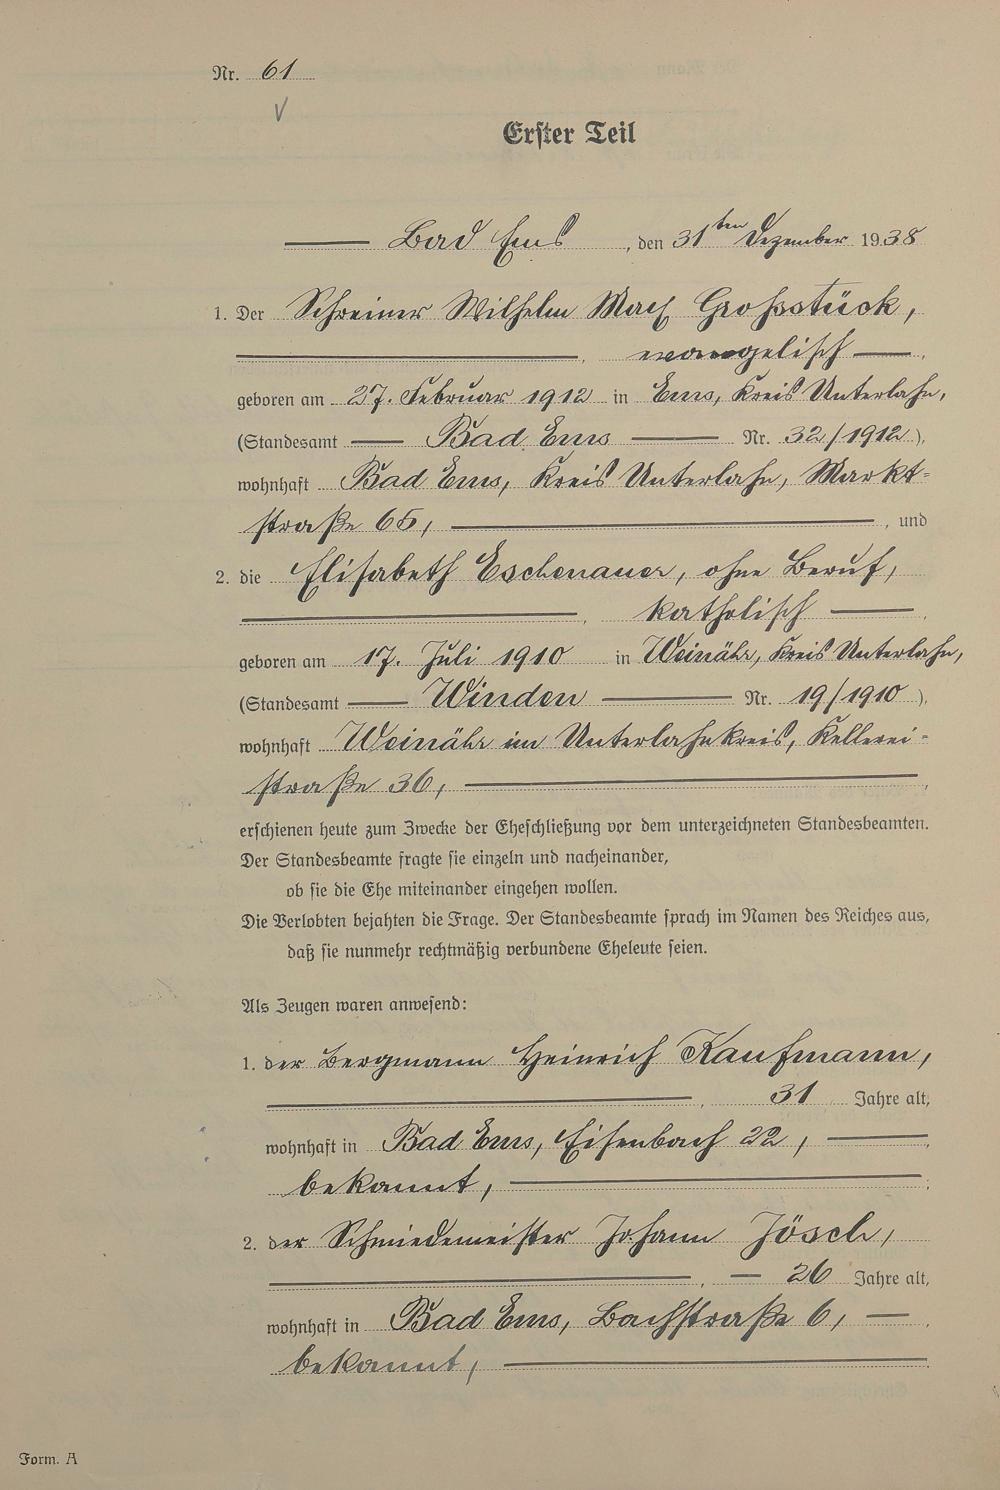 Nr. 61
Erster Teil
Bad Ems, den 31ten Dezember 1938
1. Der Schreiner Wilhelm Max Großstück,
, evangelisch ,
geboren am 27. Februar 1912 in Ems, Kreis Unterlahn,
(Standesamt Bad Ems Nr. 32/1912),
wohnhaft Bad Ems, Kreis Unterlahn, Markt-
straße 65, , und
2. die Elisabeth Eschenauer, ohne Beruf,
, katholisch ,
geboren am 17. Juli 1910 in Weinähr, Kreis Unterlahn,
(Standesamt Winden Nr. 19/1910),
wohnhaft Weinähr im Unterlahnkreis, Kellerei-
straße 36, ,
erschienen heute zum Zwecke der Eheschließung vor dem unterzeichneten Standesbeamten.
Der Standesbeamte fragte sie einzeln und nacheinander,
ob sie die Ehe miteinander eingehen wollen.
Die Verlobten bejahten die Frage. Der Standesbeamte sprach im Namen des Reiches aus,
daß sie nunmehr rechtmäßig verbundene Eheleute seien.
Als Zeugen waren anwesend:
1. der Bergmann Heinrich Kaufmann,
, 31 Jahre alt,
wohnhaft in Bad Ems, Eisenbach 22, ,
bekannt, ;
2. der Schmiedemeister Johann Jösch,
, 26 Jahre alt,
wohnhaft in Bad Ems, Bachstraße 6, ,
bekannt, .
Form. A